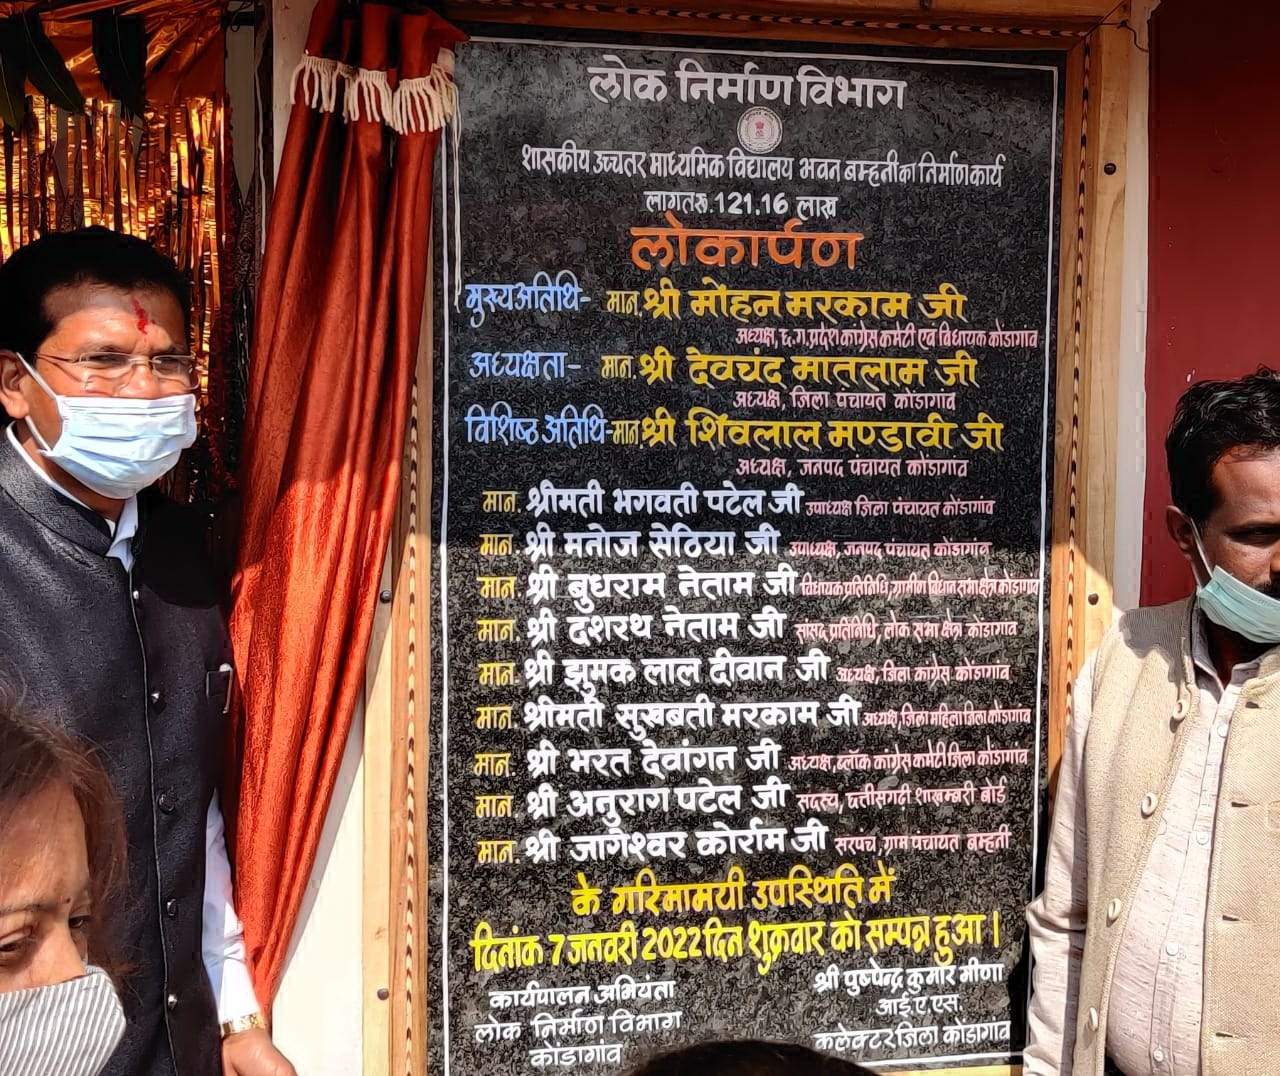 लोक निर्माण विभाग
शासकीय उच्चतर माध्यमिक विद्यालय भवन बम्हनी का निर्माण कार्य
लागत रू. 121.16 लाख
लोकार्पण
मुख्य अतिथि- मान. श्री मोहन मरकाम जी
अध्यक्ष, छ.ग. प्रदेश कांग्रेस कमेटी एवं विधायक कोंडागांव
अध्यक्षता- मान. श्री देवचंद मातलाम जी
अध्यक्ष, जिला पंचायत कोंडागांव
विशिष्ठ अतिथि- मान. श्री शिवलाल मण्डावी जी
अध्यक्ष, जनपद पंचायत कोंडागांव
मान. श्रीमती भगवती पटेल जी उपाध्यक्ष जिला पंचायत कोंडागांव
मान. श्री मनोज सेठिया जी उपाध्यक्ष, जनपद पंचायत कोंडागांव
मान. श्री बुधराम नेताम जी विधायक प्रतिनिधि, ग्रामीण विधान सभा क्षेत्र कोंडागांव
मान. श्री दशरथ नेताम जी सांसद प्रतिनिधि, लोक सभा क्षेत्र कोंडागांव
मान. श्री झुमक लाल दीवान जी अध्यक्ष, जिला कांग्रेस कोंडागांव
मान. श्रीमती सुखबती मरकाम जी अध्यक्ष, जिला महिला जिला कोंडागांव
मान. श्री भरत देवांगन जी अध्यक्ष, ब्लॉक कांग्रेस कमेटी जिला कोंडागांव
मान. श्री अनुराग पटेल जी सदस्य, छत्तीसगढी शाखम्बरी बोर्ड
मान. श्री जागेश्वर कोर्राम जी सरपंच, ग्राम पंचायत बम्हनी
के गरिमामयी उपस्थिति में
दिनांक 7 जनवरी 2022 दिन शुक्रवार को सम्पन्न हुआ।
कार्यपालन अभियंता
लोक निर्माण विभाग
कोंडागांव
श्री पुष्पेन्द्र कुमार मीणा
आई.ए.एस.
कलेक्टर जिला कोंडागांव